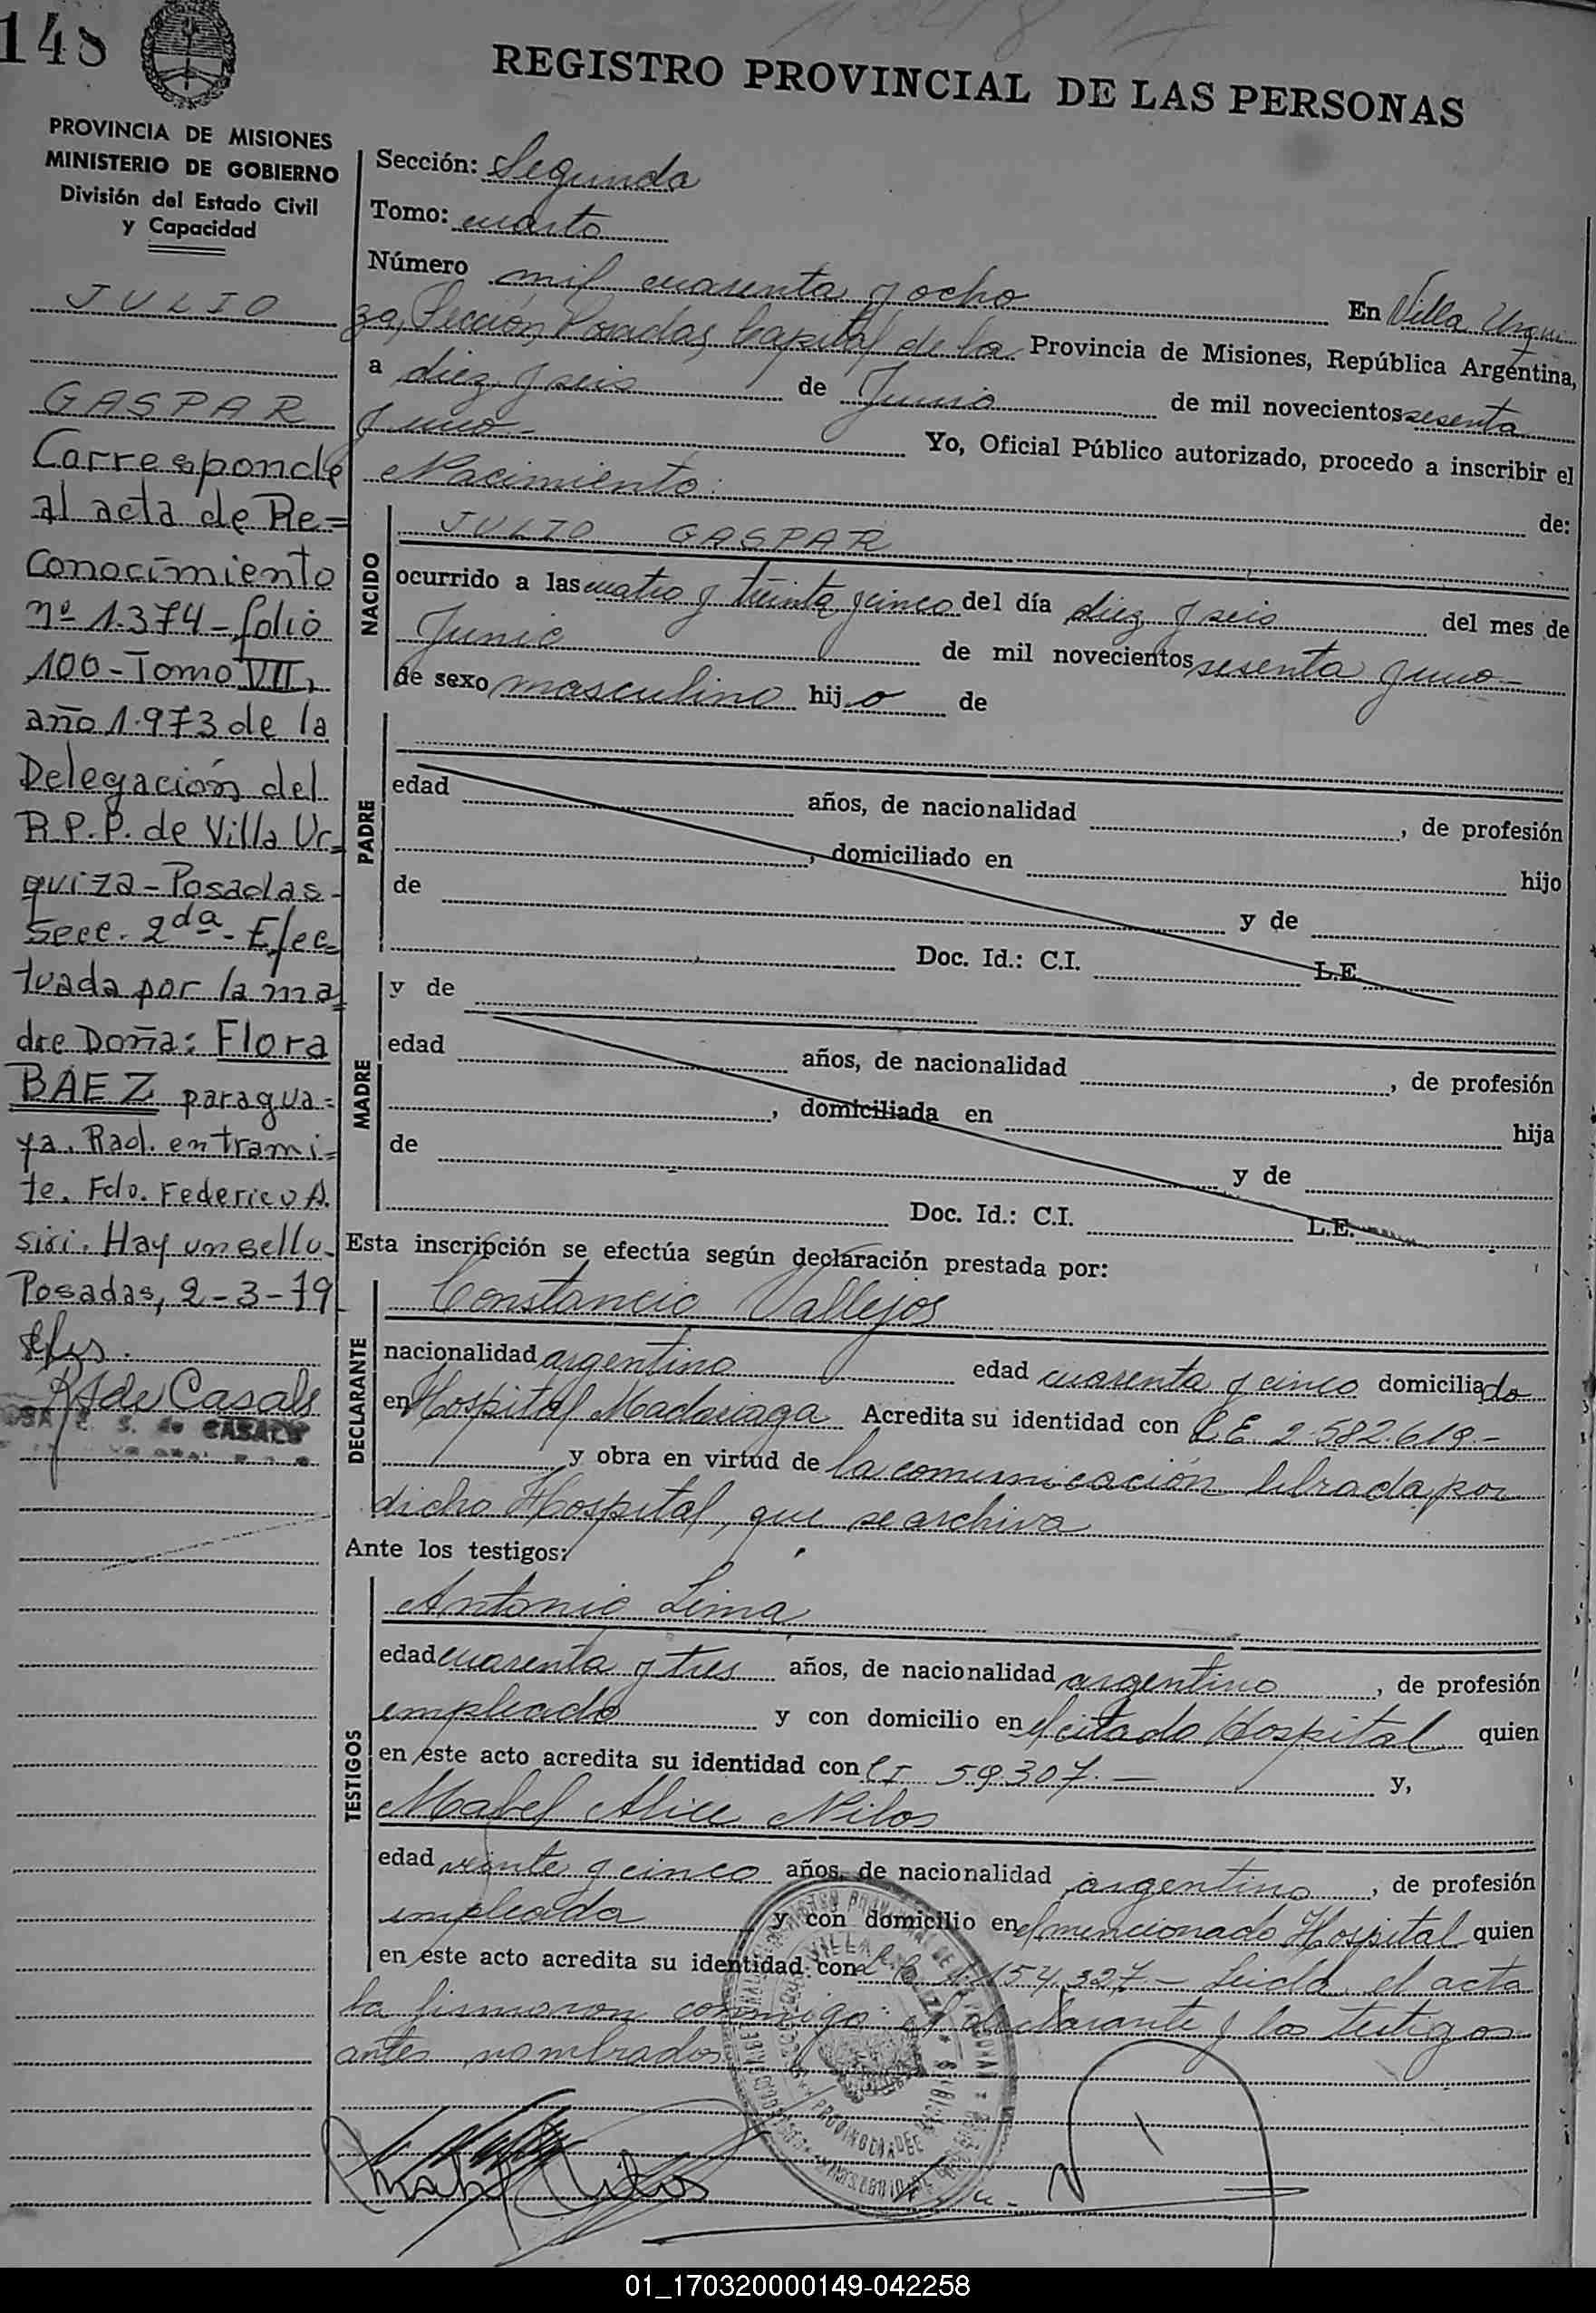 148
REGISTRO PROVINCIAL DE LAS PERSONAS
PROVINCIA DE MISIONES
MINISTERIO DE GOBIERNO
División del Estado Civil
y Capacidad
JULIO
GASPAR
Corresponde
al acta de Re=
conocimiento
nº 1.374-folio
100-Tomo VII,
año 1.973 de la
Delegación del
R.P.P. de Villa Ur=
quiza-Posadas-
Secc. 2da- Efec=
tuada por la ma=
dre Doña: Flora
BAEZ paragua=
ya. Rad. en trami=
te. Fdo. Federico A.
Siri. Hay un sello.
Posadas, 2-3-79
R S de Casals
S. de CASALS
Sección: Segunda
Tomo: cuarto
Número mil cuarenta y ocho En Villa Urqui
za, Sección Posadas, Capital de la Provincia de Misiones, República Argentina,
a diez y seis de Junio de mil novecientos sesenta
y uno.- Yo, Oficial Público autorizado, procedo a inscribir el
Nacimiento: de:
NACIDO
JULIO GASPAR
ocurrido a las cuatro y treinta y cinco del día diez y seis del mes de
Junio de mil novecientos sesenta y uno-
de sexo masculino hijo de
PADRE
edad años, de nacionalidad , de profesión
, domiciliado en hijo
de y de
Doc. Id.: C.I. L.E.
MADRE
y de
edad años, de nacionalidad , de profesión
, domiciliada en hija
de y de
Doc. Id.: C.I. L.E.
Esta inscripción se efectúa según declaración prestada por:
DECLARANTE
Constancio Vallejos
nacionalidad argentino edad cuarenta y cinco domiciliado
en Hospital Madariaga Acredita su identidad con L.E 2.582.619.-
y obra en virtud de la comunicación librada por
dicho Hospital, que se archiva
Ante los testigos:
TESTIGOS
Antonio Lima
edad cuarenta y tres años, de nacionalidad argentino , de profesión
empleado y con domicilio en el citado Hospital quien
en este acto acredita su identidad con C I 59.307.- y,
Mabel Alice Nilos
edad veinte y cinco años, de nacionalidad argentina , de profesión
empleada y con domicilio en el mencionado Hospital quien
en este acto acredita su identidad con 1.154.327.- Leida el acta
la firmaron conmigo: el declarante y los testigos
antes nombrados
01_170320000149-042258